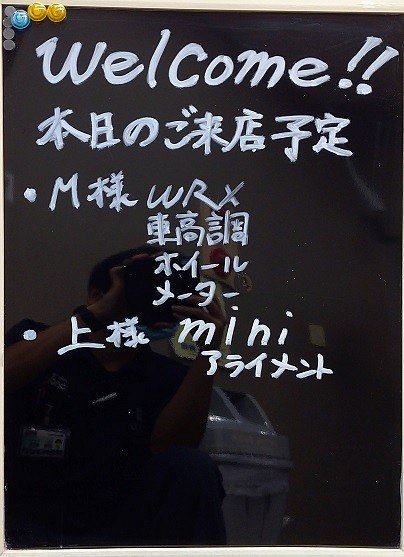 Welcome!!
本日のご来店予定
・M様 WRX
車高調
ホイール
メーター
・上様 mini
アライメント